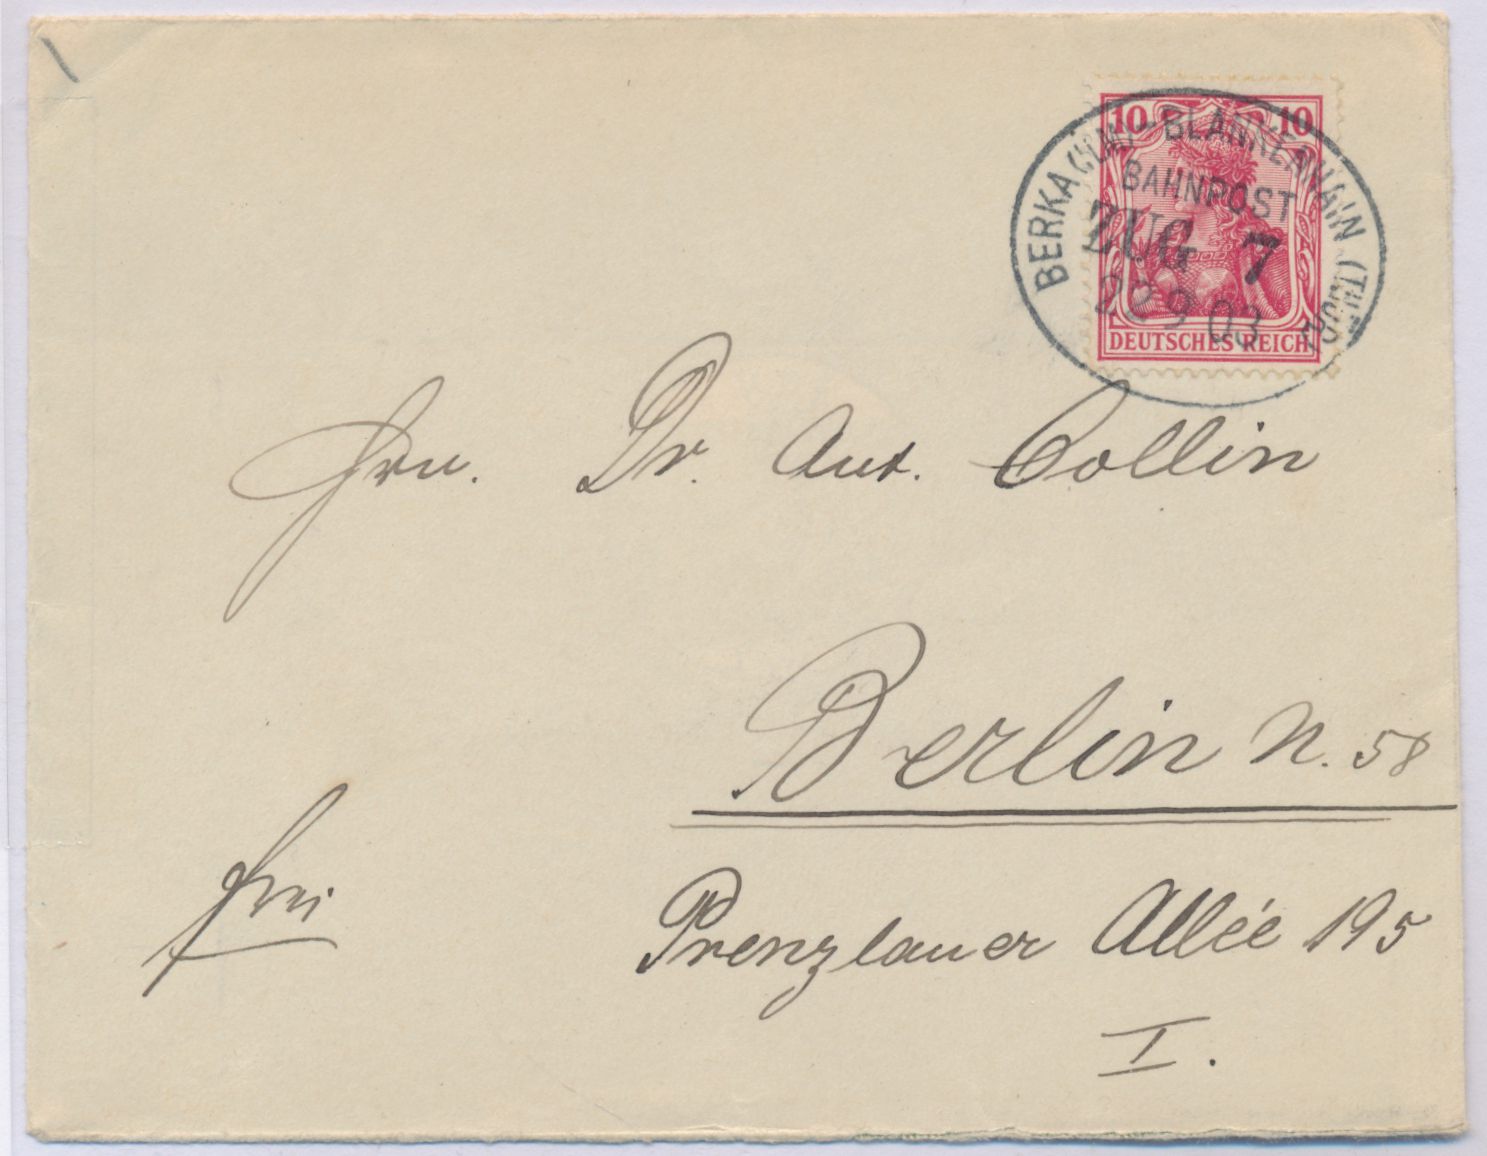 10 10
BERKA (ILM) - BLANKENHAIN (THÜR)
BAHNPOST
ZUG 7
22 9 03
DEUTSCHES REICH
Hrn. Dr. Ant. Collin
Berlin N. 58
frei
Prenzlauer Allée 195
I.